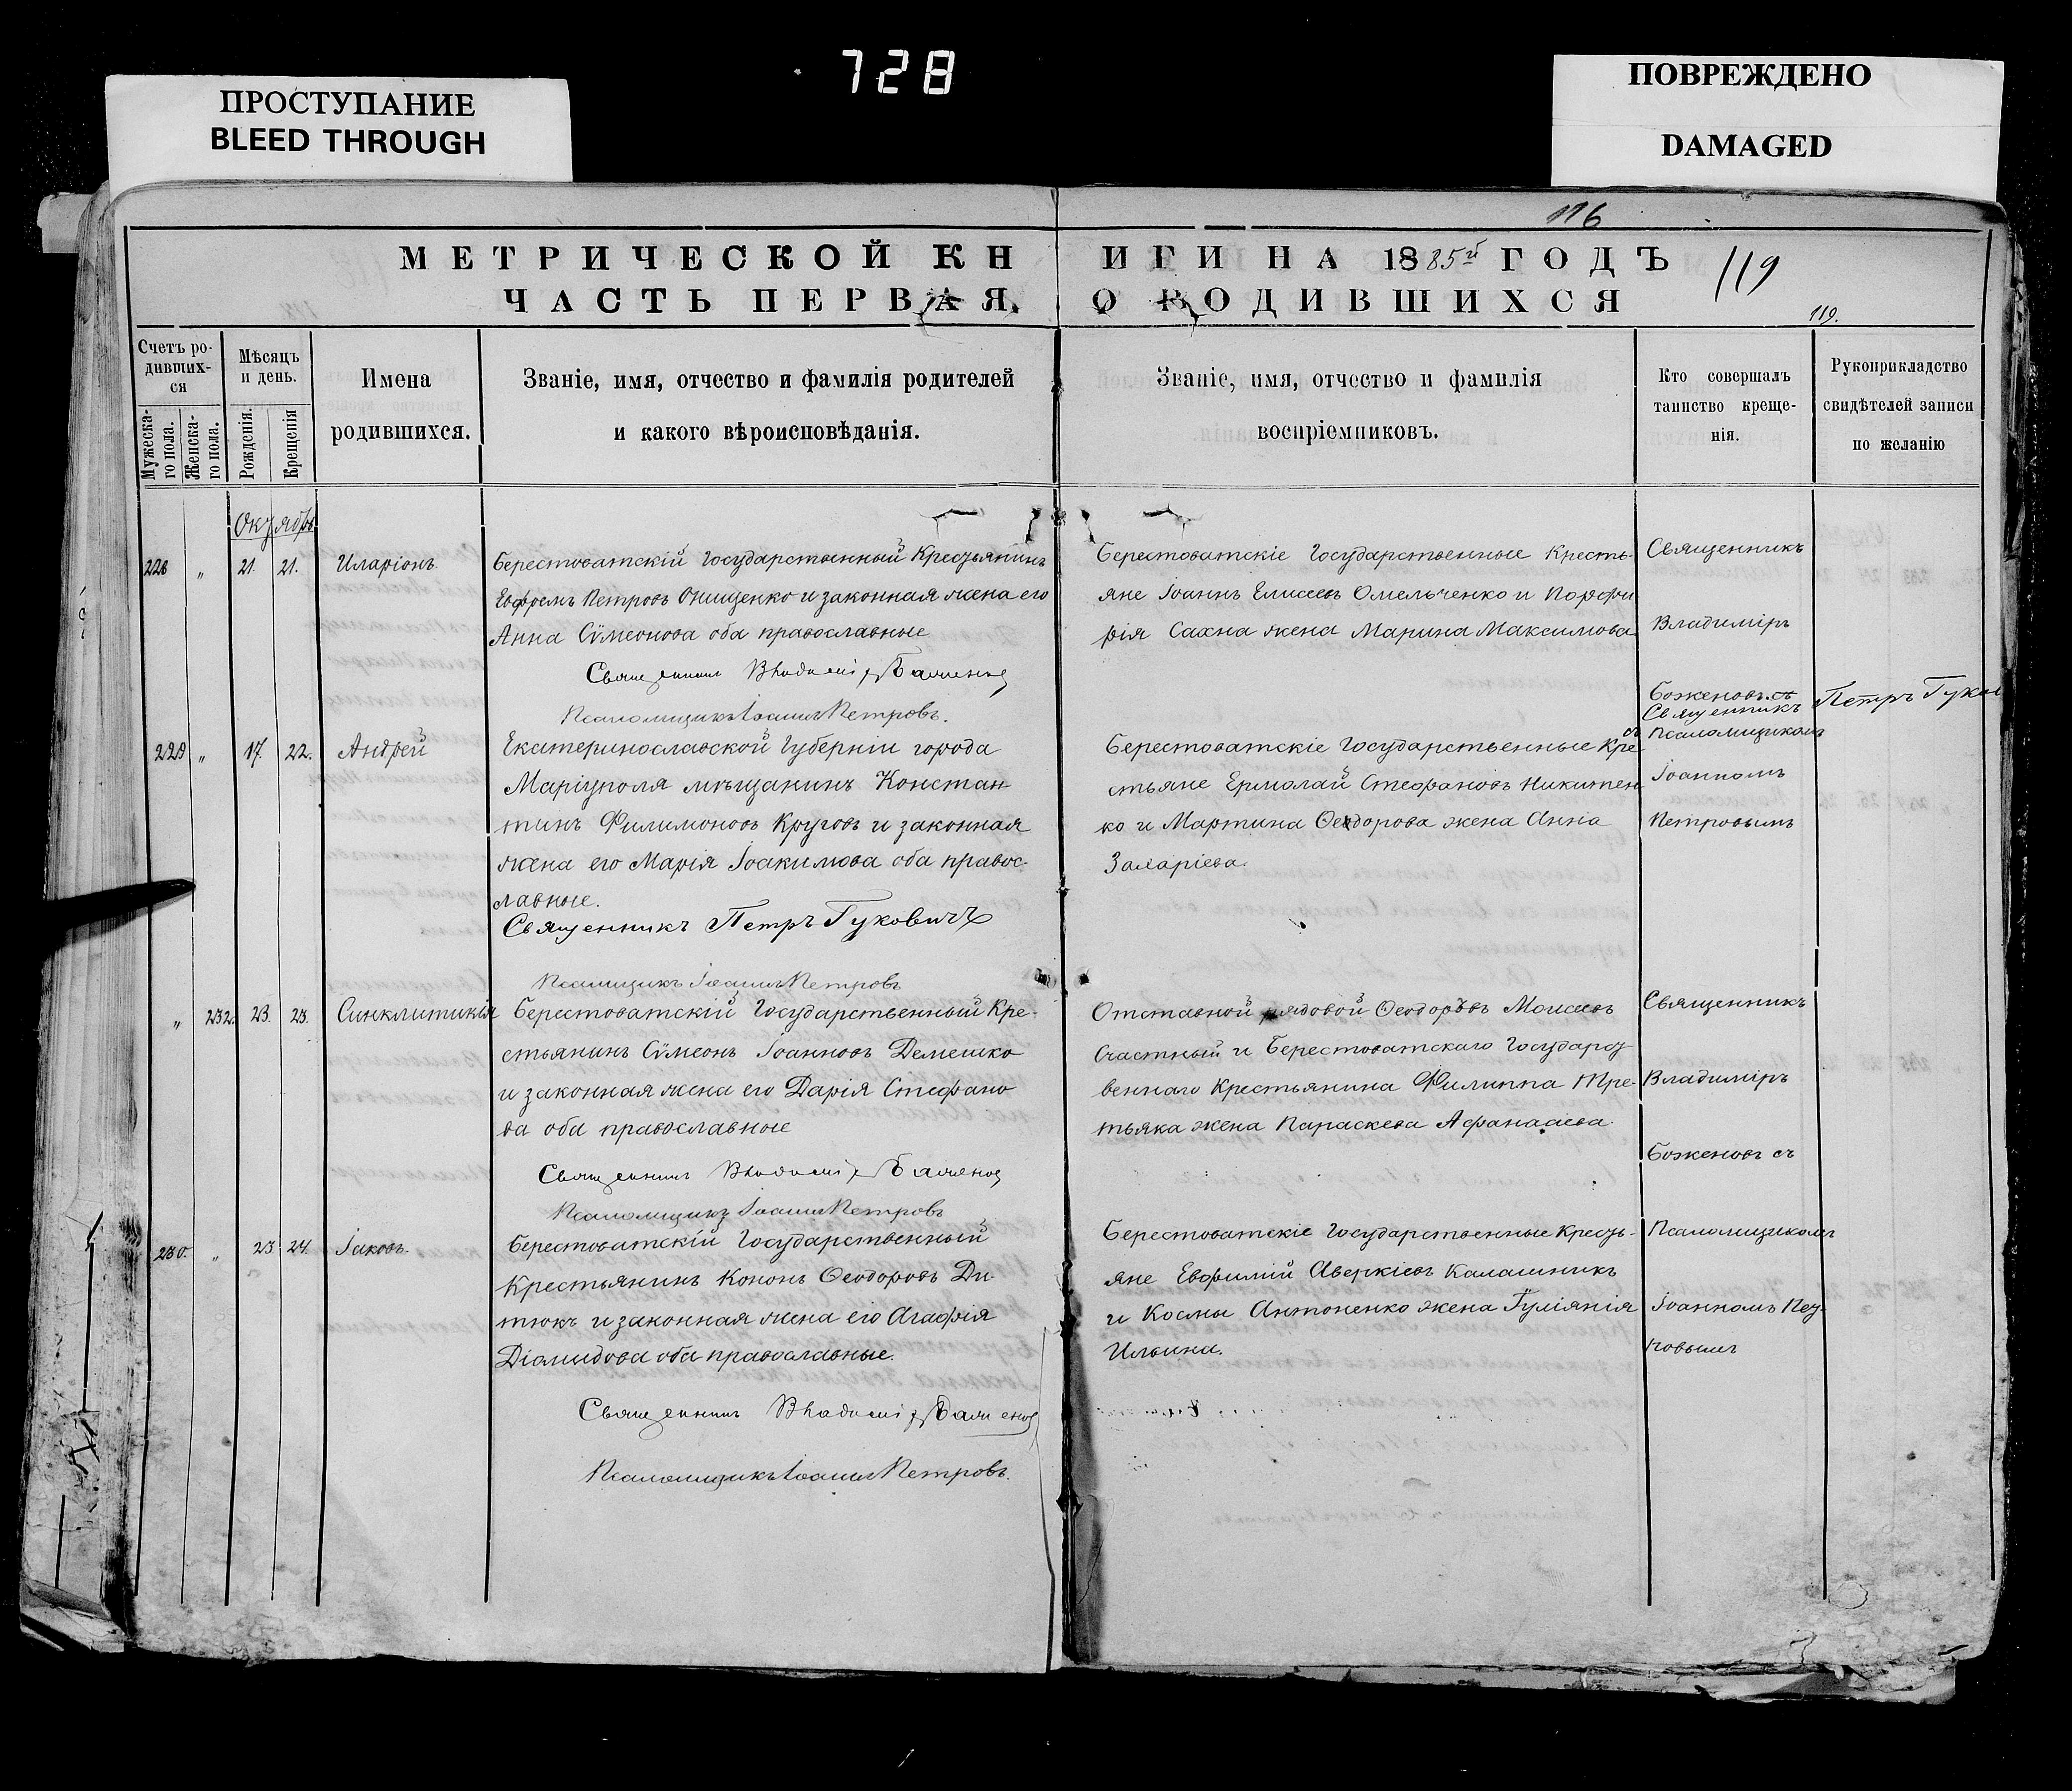 728
ПРОСТУПАНИЕ
BLEED THROUGH
ПОВРЕЖДЕНО
DAMAGED
116
МЕТРИЧЕСКОЙ КНИГИ НА 1885й ГОДЪ
119
ЧАСТЬ ПЕРВАЯ. О РОДИВШИХСЯ
119.
Счетъ ро-
дивших-
ся
Мужеска-
го пола.
Женска-
го пола.
Мѣсяцъ
и день.
Рожденія.
Крещенія
Имена
родившихся.
Званіе, имя, отчество и фамилія родителей
и какого вѣроисповѣданія.
Званіе, имя, отчество и фамилія
воспріемниковъ.
Кто совершалъ
таинство креще-
нія.
Рукоприкладство
свидѣтелей записи
по желанію
Октябрь
228 „ 21. 21. Иларіонъ.
Берестоватскій Государственный Крестьянинъ
Евфремъ Петровъ Онищенко и законная жена его
Анна Сѵмеонова оба православные
Священникъ Владиміръ Боженовъ
Псаломщикъ Іоаннъ Петровъ.
Берестоватскіе Государственные Кресть-
яне Іоаннъ Елисеевъ Омельченко и Порфи
рія Сахна жена Марина Максимова
Священникъ
Владиміръ
Боженовъ съ
Священникъ Петръ Гуков
229 „ 17. 22. Андрей
Екатеринославской Губерніи города
Маріуполя мѣщанинъ Констан
тинъ Филимоновъ Круговъ и законная
жена его Марія Іоакимова оба правос-
лавные.
Священникъ Петръ Гуковичъ
Псаломщикъ Іоаннъ Петровъ
Берестоватскіе Государственные Кре
стьяне Ермолай Стефановъ Никитен
ко и Мартина Ѳеодорова жена Анна
Захаріева.
съ Псаломщикомъ
Іоанномъ
Петровымъ
„ 232. 23. 23. Синклитикія
Берестоватскій Государственный Кре-
стьянинъ Сѵмеонъ Іоанновъ Демешко
и законная жена его Дарія Стефано
ва оба православные
Священникъ Владиміръ Боженовъ
Псаломщикъ Іоаннъ Петровъ
Отставной рядовой Ѳеодоръ Моисеевъ
Счастный и Берестоватскаго Государст
веннаго Крестьянина Филиппа Тре-
тьяка жена Параскева Афанасіева.
Священникъ
Владиміръ
Боженовъ съ
230. „ 23 24. Іаковъ.
Берестоватскій Государственный
Крестьянинъ Кононъ Ѳеодоровъ Ди-
тюкъ и законная жена его Агафія
Діомидова оба православные.
Священникъ Владиміръ Боженовъ
Псаломщикъ Іоаннъ Петровъ.
Берестоватскіе Государственные Кресть-
яне Евфимій Аверкіевъ Калашникъ
и Космы Антоненко жена Іуліянія
Ильина.
Псаломщикомъ
Іоанномъ Пет
ровымъ